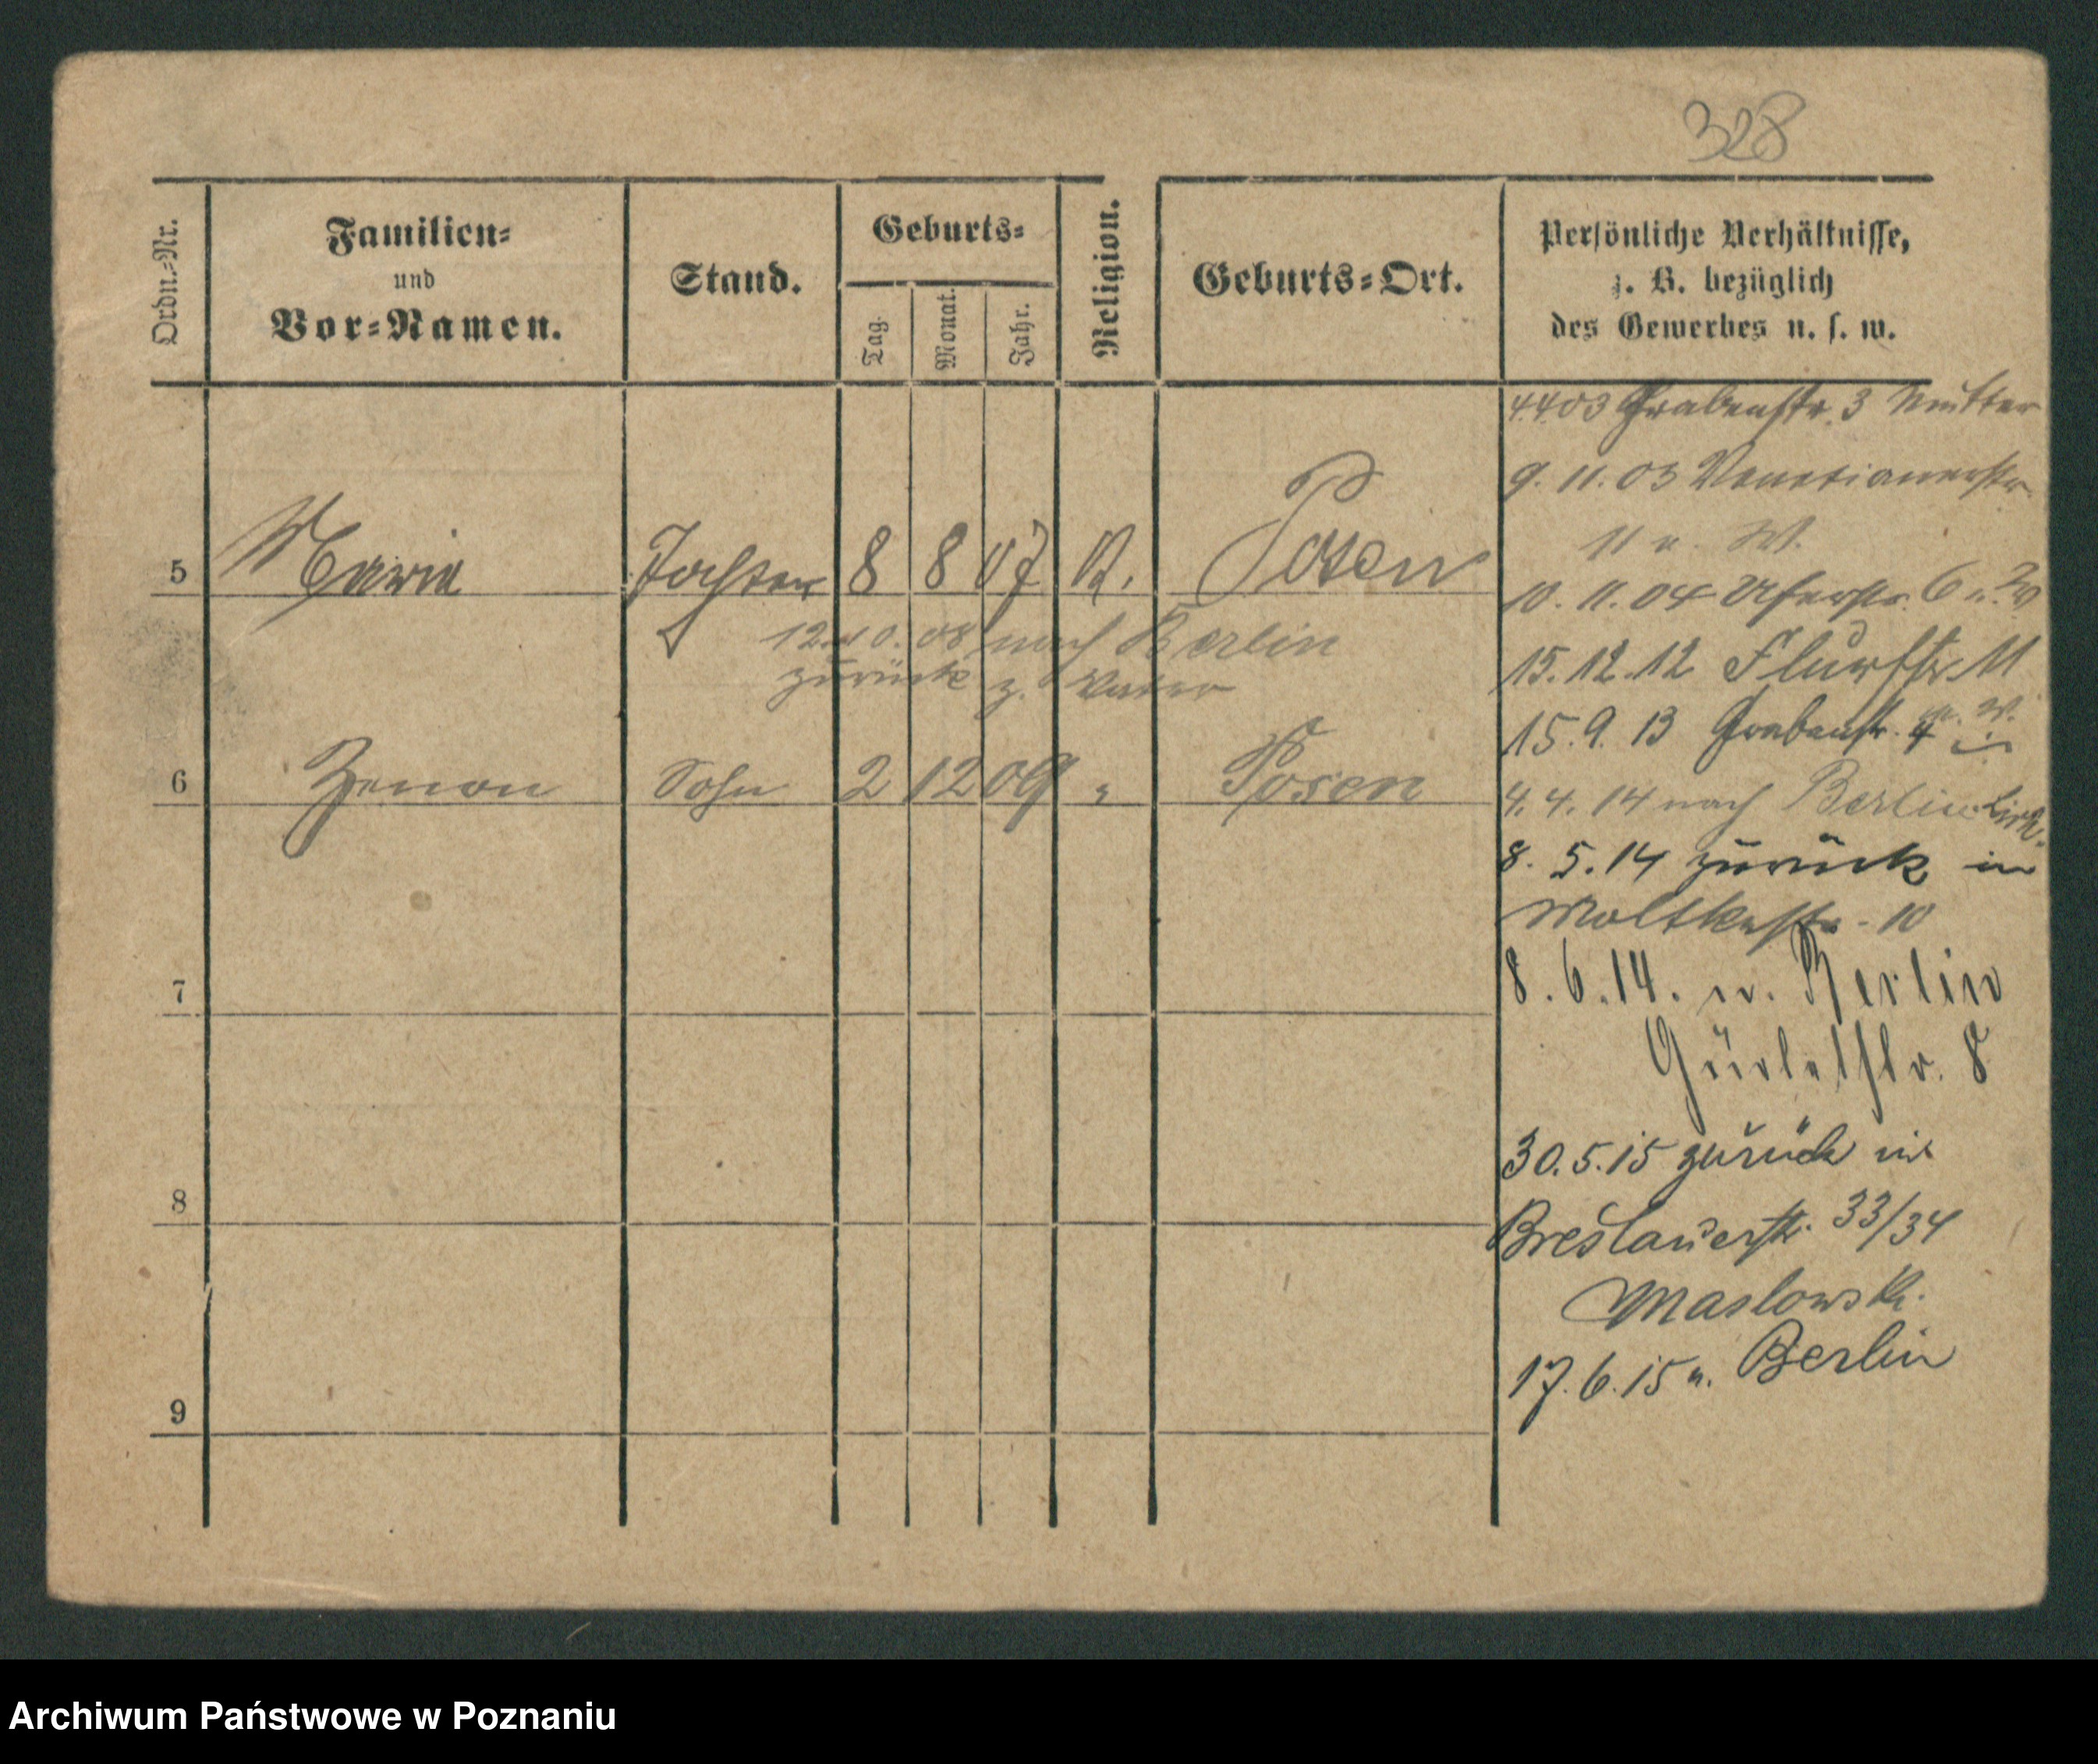 328
Ordn.-Nr.
Familien-
und
Vor-Namen.
Stand.
Geburts-
Tag.
Monat.
Jahr.
Religion.
Geburts-Ort.
Persönliche Verhältnisse,
z. B. bezüglich
des Gewerbes u. s. w.
4.4.03 Grabenstr. 3 Mutter
9. 11. 03 Venetianerstr.
11 u. W.
5 Maria Tochter 8 8 07 K. Posen
10. 11. 04 Uferstr. 6
12.10.08 nach Berlin
zurück z. Vater
15.12.12 Flurstr. 11
15.9.13 Grabenstr. 4
6 Zenon Sohn 2 12 09 " Posen
4.4.14 nach Berlin
8.5.14 zurück in
Moltkestr. 10
7
8.6.14. n. Berlin
8
30.5.15 zurück in
8
Breslauerstr. 33/34
Maslowski.
17.6.15 n. Berlin
9
Archiwum Państwowe w Poznaniu